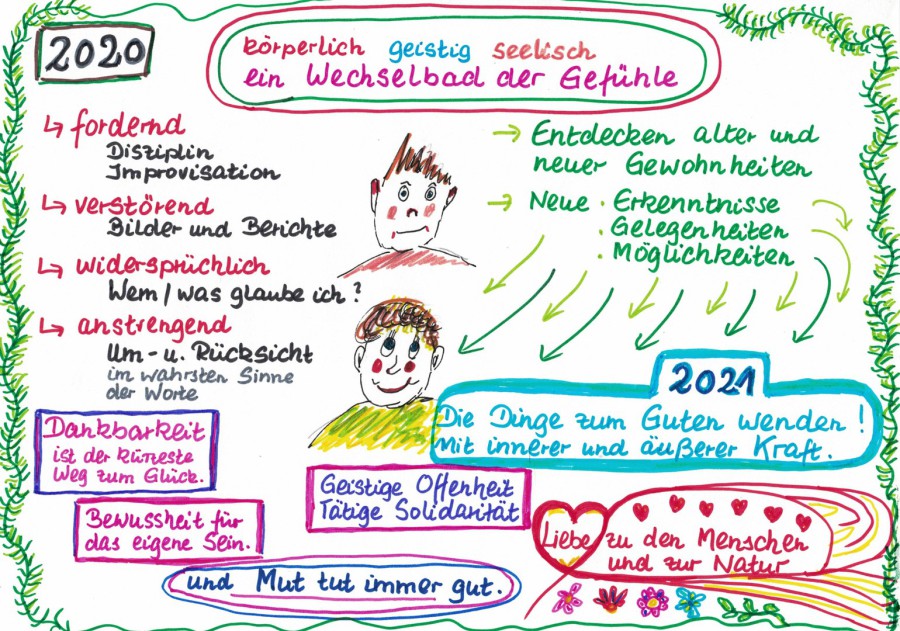 2020
körperlich geistig seelisch
ein Wechselbad der Gefühle
fordernd
Disziplin
Improvisation
verstörend
Bilder und Berichte
widersprüchlich
Wem / was glaube ich ?
anstrengend
Um- u. Rücksicht
im wahrsten Sinne
der Worte
Entdecken alter und
neuer Gewohnheiten
Neue · Erkenntnisse
· Gelegenheiten
· Möglichkeiten
2021
Die Dinge zum Guten wenden !
Mit innerer und äußerer Kraft.
Dankbarkeit
ist der kürzeste
Weg zum Glück.
Geistige Offenheit
Tätige Solidarität
Bewussheit für
das eigene Sein.
Liebe zu den Menschen
und zur Natur
und Mut tut immer gut.